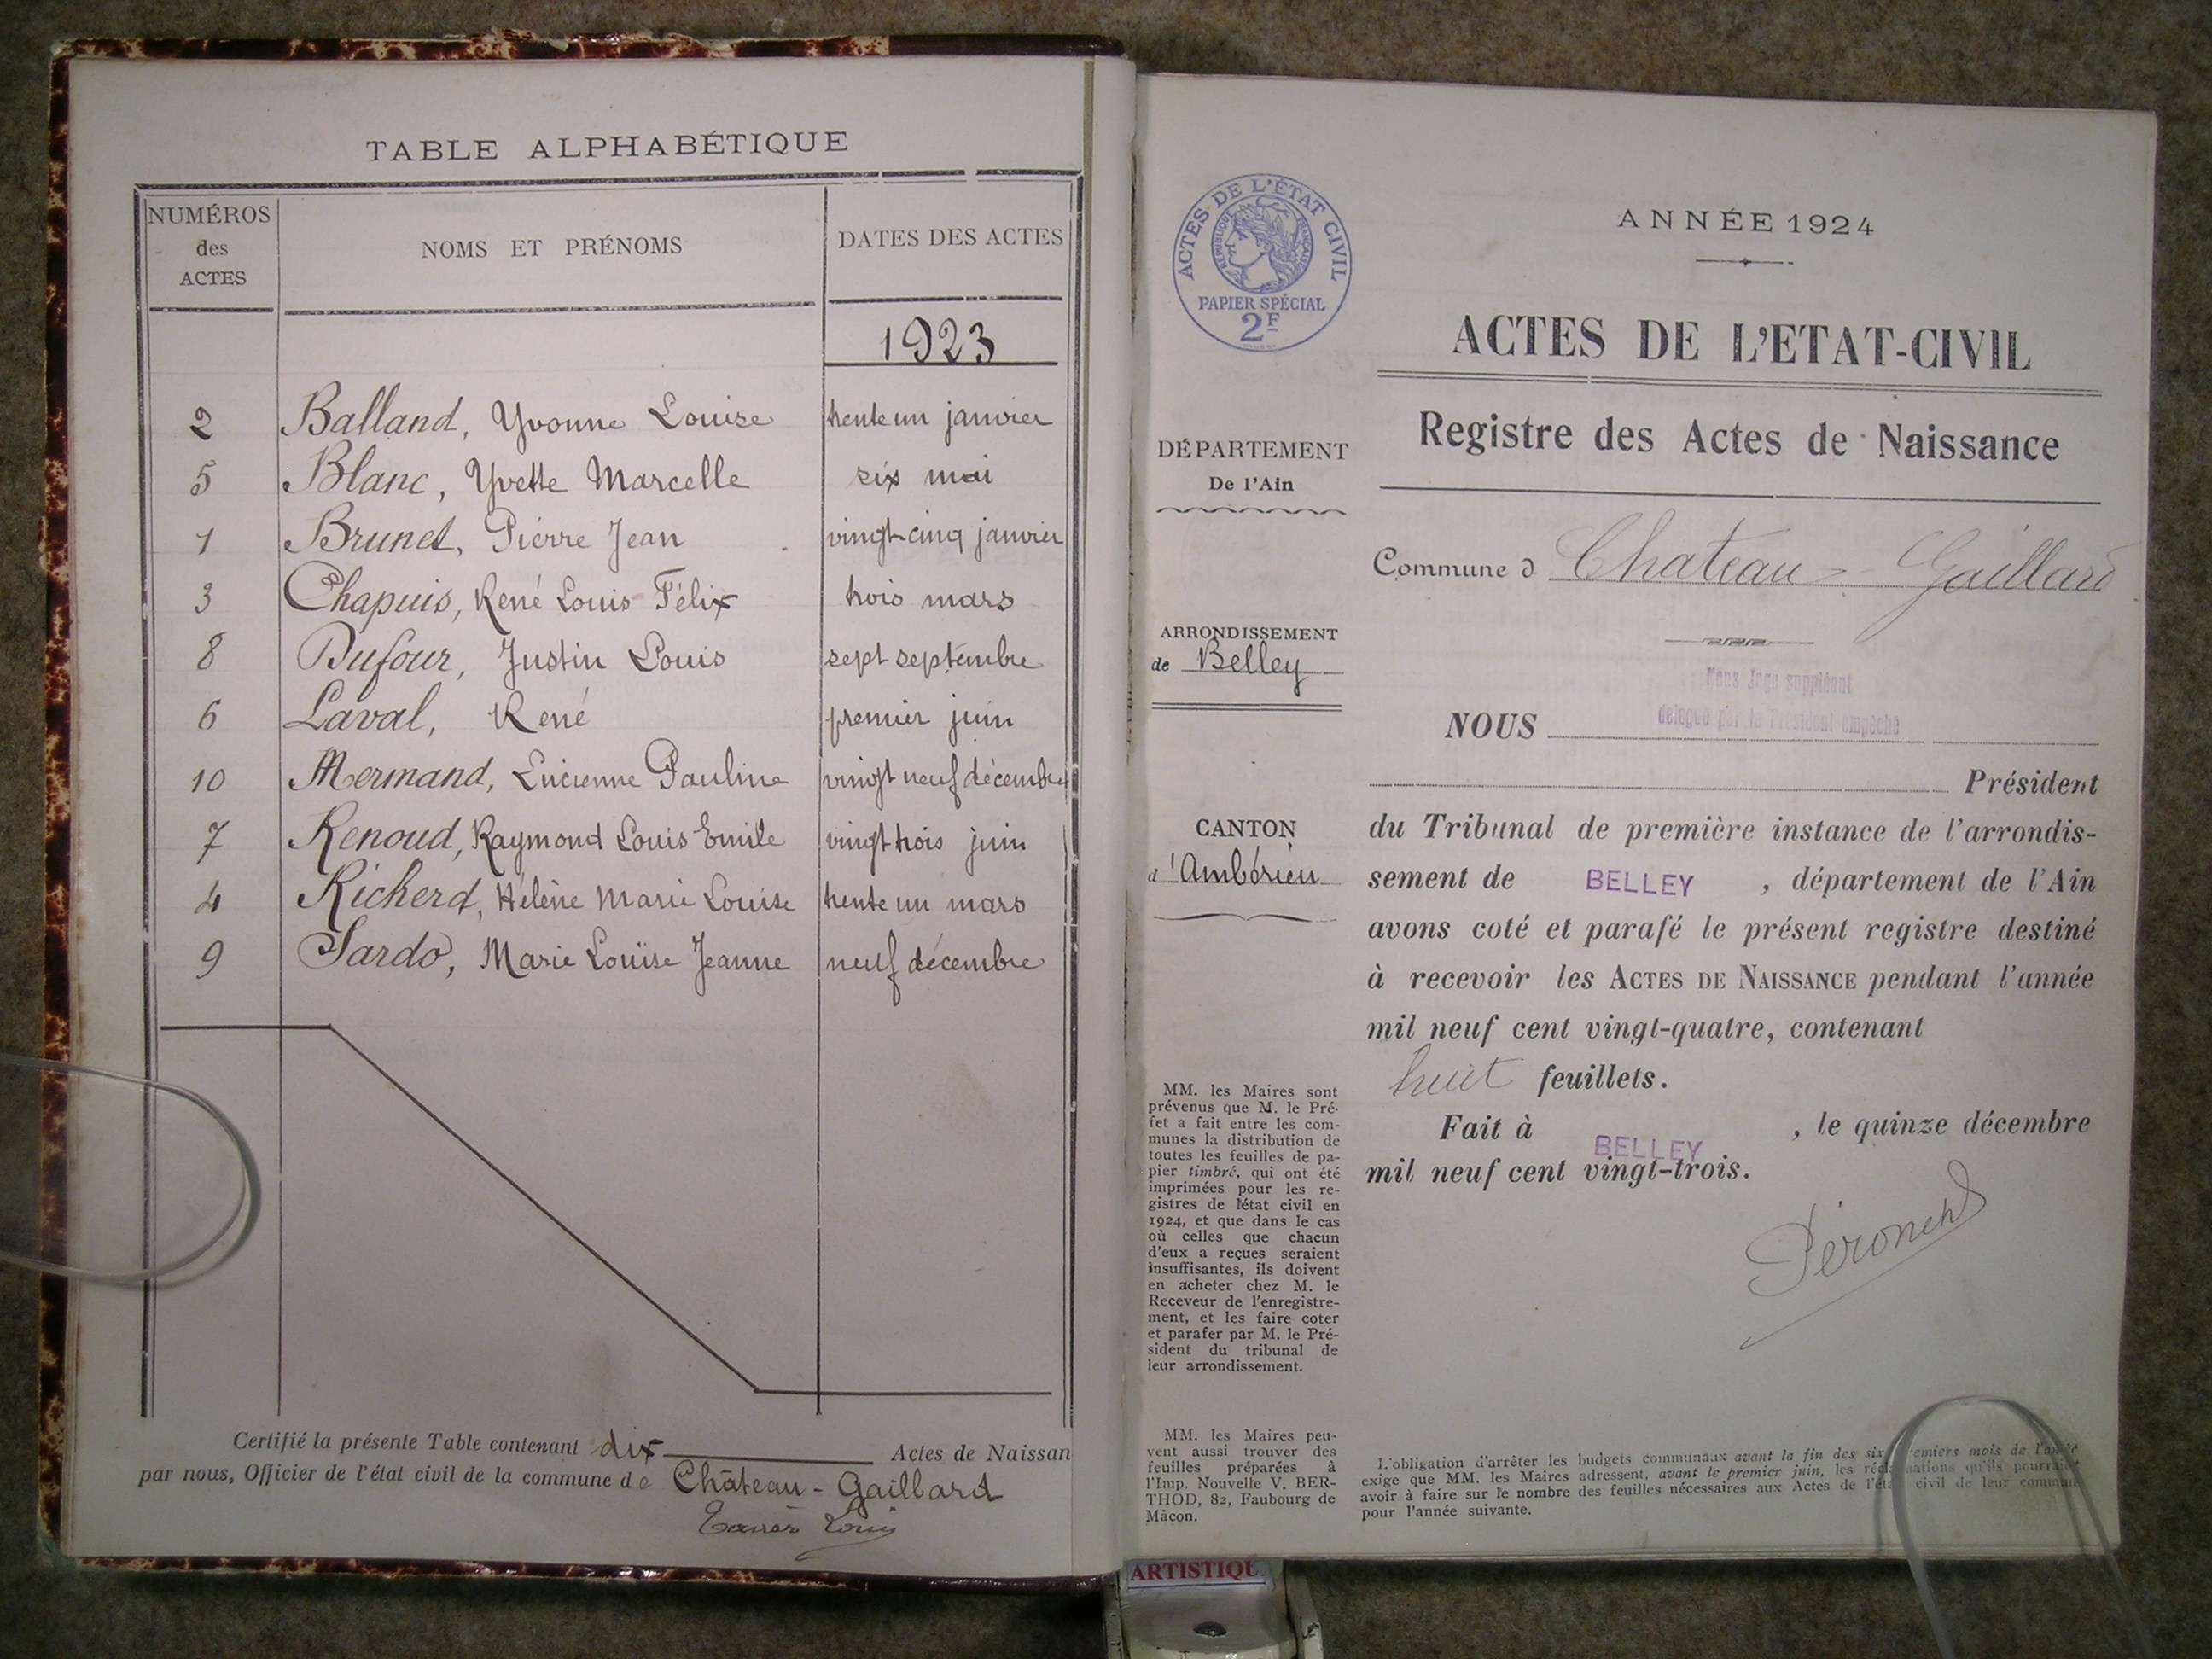 TABLE ALPHABÉTIQUE
NUMÉROS des ACTES
NOMS ET PRÉNOMS
DATES DES ACTES
1923
2 Balland, Yvonne Louise trente un janvier
5 Blanc, Yvette Marcelle six mai
1 Brunet, Pierre Jean vingt-cinq janvier
3 Chapuis, René Louis Félix trois mars
8 Dufour, Justin Louis sept septembre
6 Laval, René premier juin
10 Mermand, Lucienne Pauline vingt neuf décembre
7 Renoud, Raymond Louis Emile vingt trois juin
4 Richerd, Hélène Marie Louise trente un mars
9 Sardo, Marie Louise Jeanne neuf décembre
Certifié la présente Table contenant dix Actes de Naissan
par nous, Officier de l'état civil de la commune de Château-Gaillard
Louis
ACTES DE L'ÉTAT CIVIL
RÉPUBLIQUE FRANÇAISE
PAPIER SPÉCIAL
2F
DÉPARTEMENT
De l'Ain
ARRONDISSEMENT
de Belley
CANTON
d'Ambérieu
MM. les Maires sont
prévenus que M. le Pré-
fet a fait entre les com-
munes la distribution de
toutes les feuilles de pa-
pier timbré, qui ont été
imprimées pour les re-
gistres de l'état civil en
1924, et que dans le cas
où celles que chacun
d'eux a reçues seraient
insuffisantes, ils doivent
en acheter chez M. le
Receveur de l'enregistre-
ment, et les faire coter
et parafer par M. le Pré-
sident du tribunal de
leur arrondissement.
MM. les Maires peu-
vent aussi trouver des
feuilles préparées à
l'Imp. Nouvelle V. BER-
THOD, 82, Faubourg de
Mâcon.
ANNÉE 1924
ACTES DE L'ETAT-CIVIL
Registre des Actes de Naissance
Commune d Chateau-Gaillard
Nous Juge suppléant
délégué par le Président empêché
NOUS
Président
du Tribunal de première instance de l'arrondis-
sement de BELLEY , département de l'Ain
avons coté et parafé le présent registre destiné
à recevoir les ACTES DE NAISSANCE pendant l'année
mil neuf cent vingt-quatre, contenant
huit feuillets.
Fait à BELLEY , le quinze décembre
mil neuf cent vingt-trois.
L'obligation d'arrêter les budgets communaux avant la fin des six premiers mois de l'année
exige que MM. les Maires adressent, avant le premier juin, les réclamations qu'ils pourraient
avoir à faire sur le nombre des feuilles nécessaires aux Actes de l'état civil de leur commune
pour l'année suivante.
ARTISTIQU